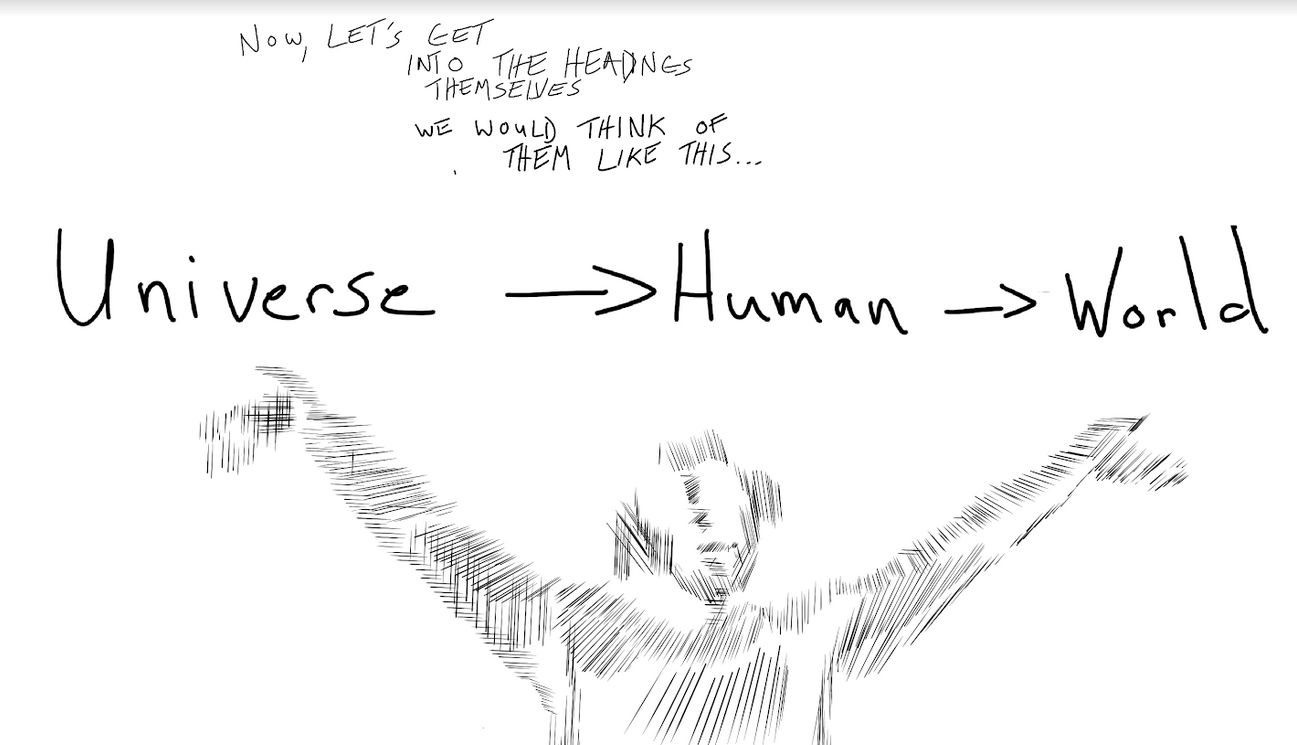 NOW, LET'S GET
INTO THE HEADINGS
THEMSELVES
WE WOULD THINK OF
THEM LIKE THIS...
Universe → Human → World